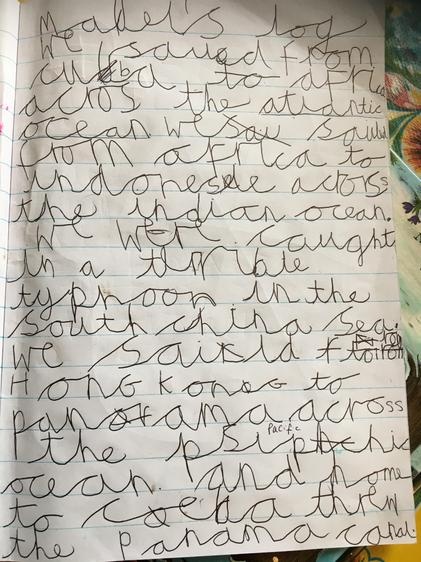 Madel's log
We sailed from
cuba to africa
across the atlantic
ocean. We sailed
from africa to
indonesele across
the indian ocean.
We were caught
in a terrible
typhoon in the
South china Sea.
We saikld from
HONG KONG to
panama across
Pacific
the
ocean. and home
to cooba threw
the panama canal.